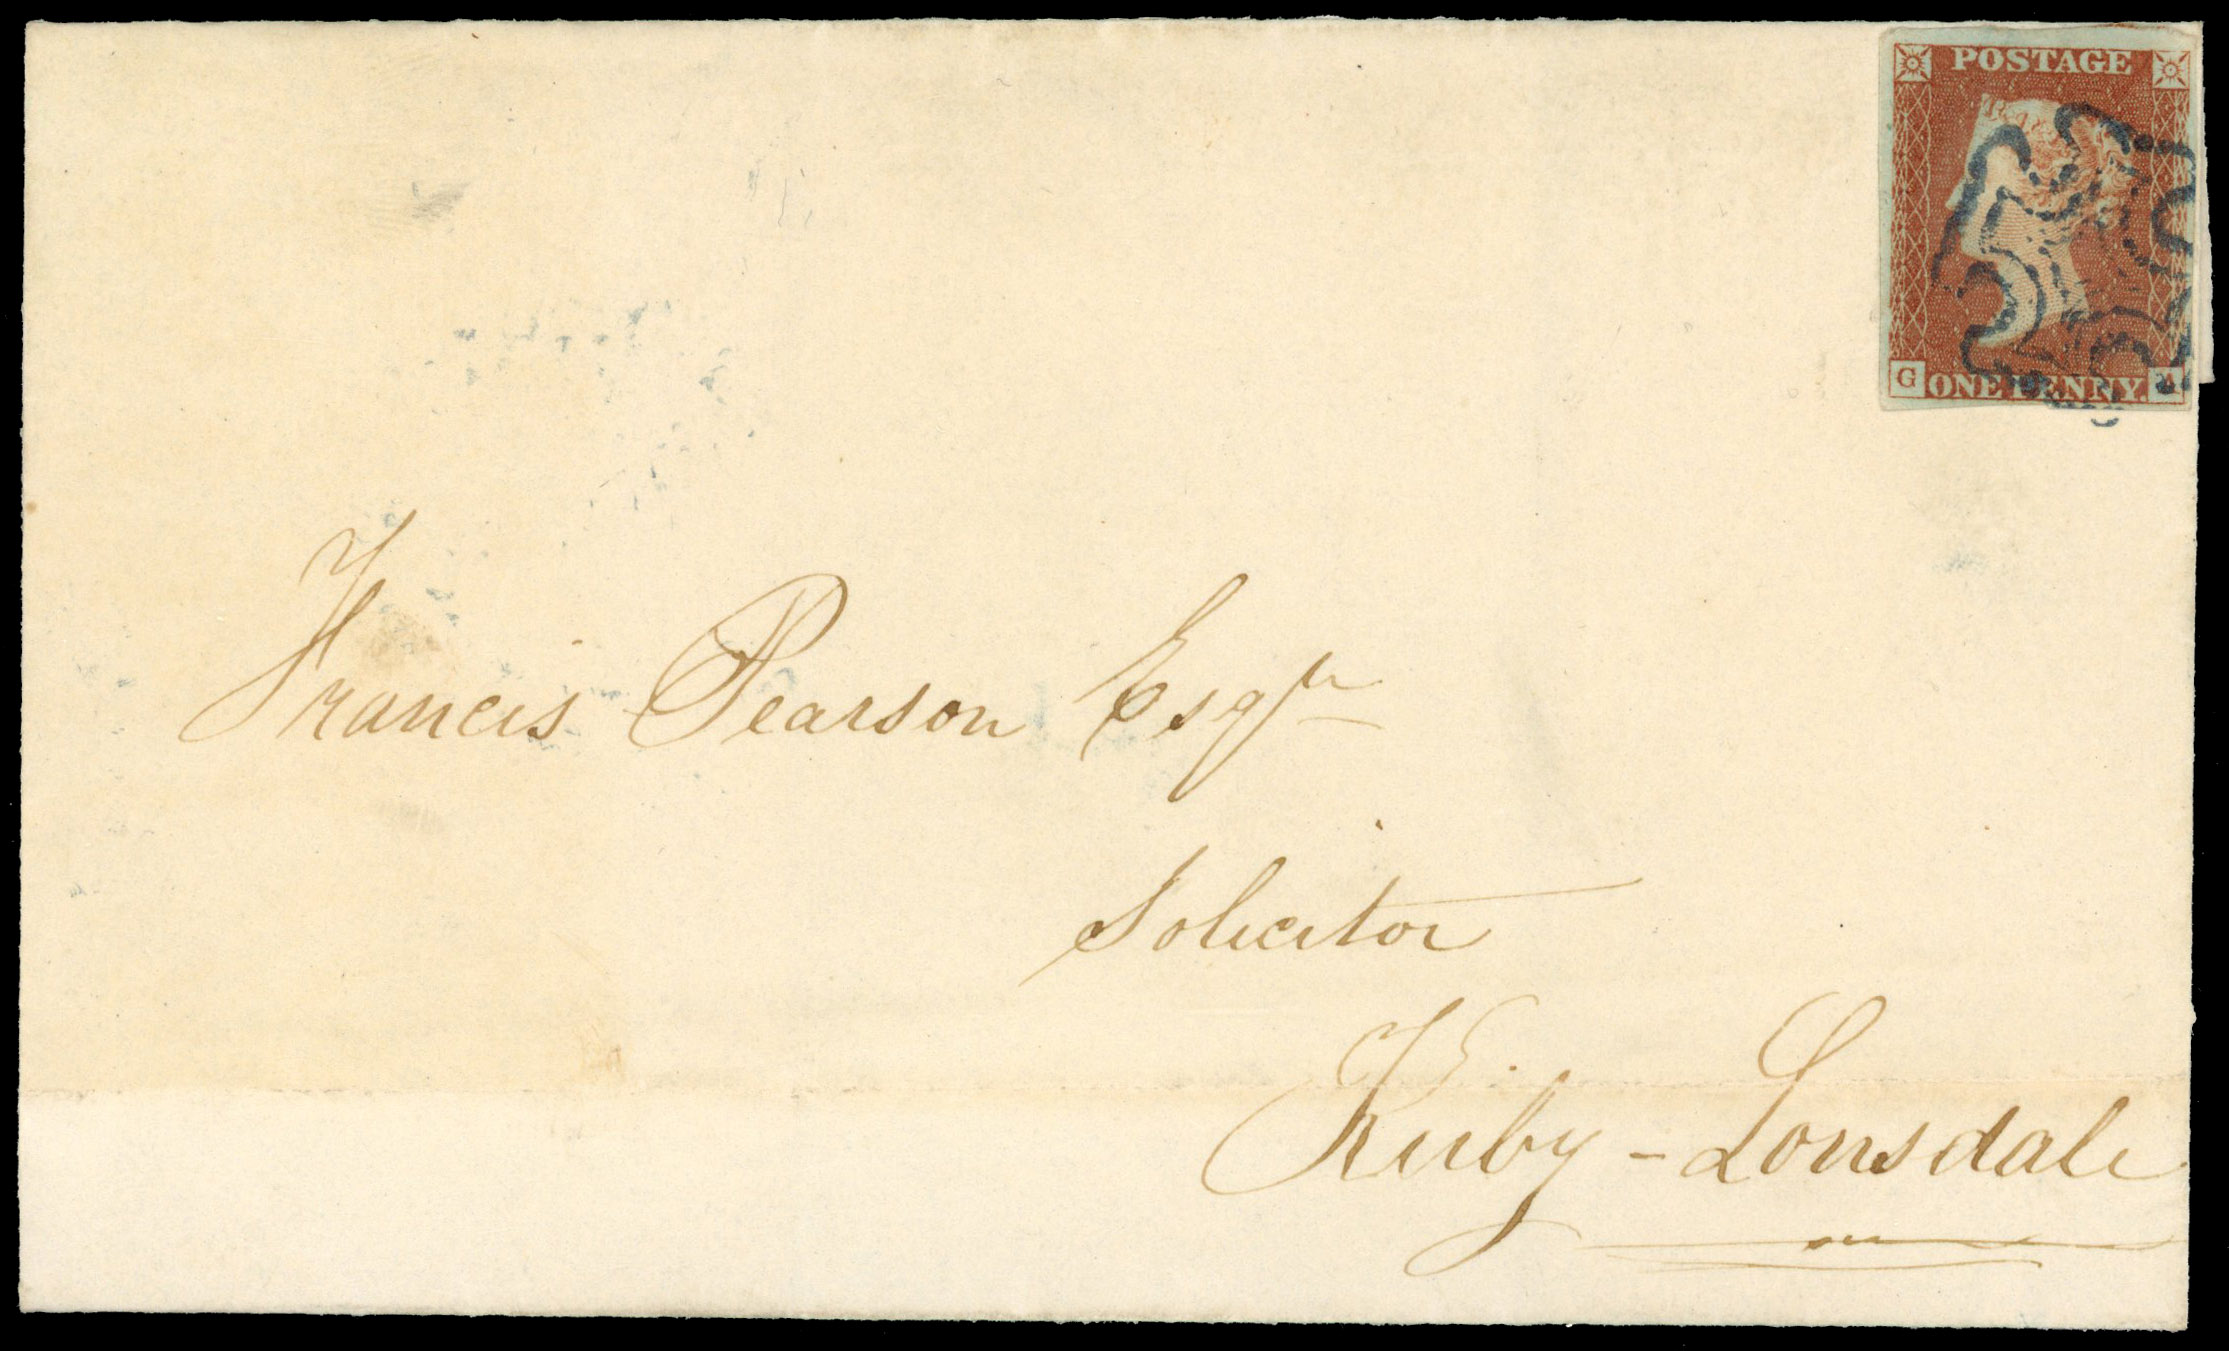 POSTAGE
G ONE PENNY.
Francis Pearson Esqr
Solicitor
Kirby-Lonsdale